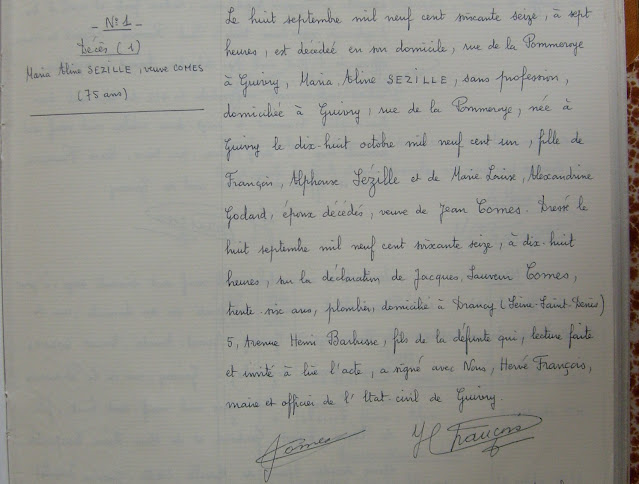 - N° 1 -
Décès (1)
Maria Aline SEZILLE, veuve COMES
(75 ans)
Le huit septembre mil neuf cent soixante seize, à sept
heures, est décédée en son domicile, rue de la Pommeroye
à Guivry, Maria, Aline SEZILLE, sans profession,
domiciliée à Guivry, rue de la Pommeroye, née à
Guivry le dix-huit octobre mil neuf cent un, fille de
François, Alphonse Sézille et de Marie Louise, Alexandrine
Godard, époux décédés, veuve de Jean Comes. Dressé le
huit septembre mil neuf cent soixante seize, à dix-huit
heures, sur la déclaration de Jacques, Laurent Comes,
trente-six ans, plombier, domicilié à Drancy (Seine-Saint-Denis)
5, Avenue Henri Barbusse, fils de la défunte qui, lecture faite
et invité à lire l'acte, a signé avec Nous, Hervé François,
maire et officier de l'Etat-civil de Guivry.
Comes
H François